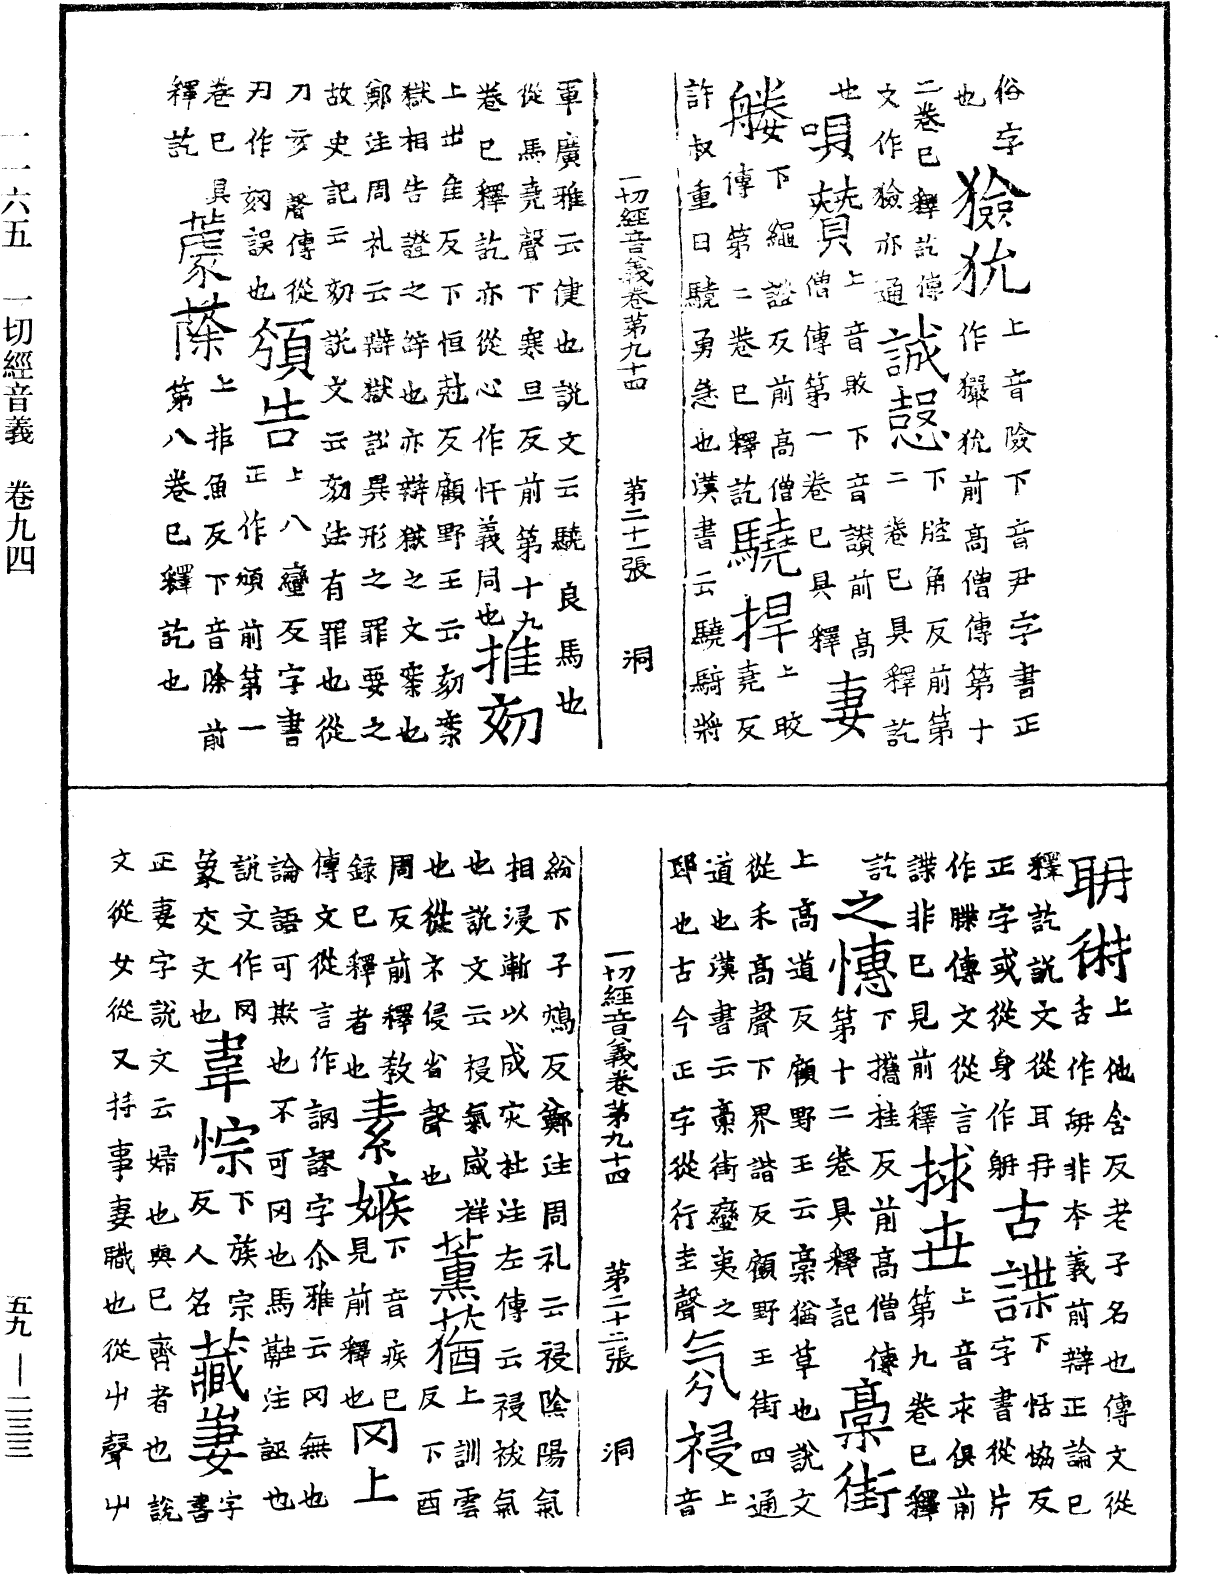 俗字
也
獫狁上音險下音尹字書正
作玁狁前高僧傳第十
二卷已釋訖傳
文作獫亦通
誠愨下腔角反前第
二卷已具釋訖
也
唄讚上音敗下音讚前高
僧傳第一卷已具釋
妻
䑏傳下繩證反前高僧
第二卷已釋訖
驍捍上晈
堯反
許叔重曰驍勇急也漢書云驍騎將
一切經音義卷第九十四 第二十一張 洞
軍廣雅云健也說文云驍良馬也
從馬堯聲下寒旦反前第十九
卷已釋訖亦從心作忓義同也
推劾
上出隹反下恒尅反顧野王云劾案
獄相告證之辞也亦辯獄之文案也
鄭注周礼云辯獄訟異形之罪要之
故史記云劾說文云劾法有罪也從
刀亥聲傳從
刃作刻誤也
領告上八蠻反字書
正作頒前第一
卷已具
釋訖
蘧蒢上非魚反下音除前
第八卷已釋訖也
聃術上他含反老子名也傳文從
舌作䑙非本義前辯正論已
釋訖說文從耳冉
正字或從身作躬
古諜下恬協反
字書從片
作牒傳文從言
諜非已見前釋
捄世上音求俱前
第九卷已釋
訖
之憓下攜桂反前高僧傳
第十二卷具釋記
槀街
上高道反顧野王云槀猶草也說文
從禾高聲下界諧反顧野王街四通
道也漢書云槀街蠻夷之
邸也古今正字從行圭聲
氛祲上
音
一切經音義卷第九十四 第二十二張 洞
紛下子鴆反鄭注周礼云祲陰陽氣
相浸漸以成灾杜注左傳云祲祓氣
也說文云祲氣感祥
也從示侵省聲也
薰蕕上訓雲
反下酉
周反前釋教
録已釋者也
素嫉下音疾已
見前釋也
罔上
傳文從言作詷謬字尒雅云罔無也
論語可欺也不可罔也馬融注誣也
說文作网
象交文也
韋悰下族宗
反人名
藏妻字
書
正妻字說文云婦也與已齊者也說
文從女從又持事妻職也從屮聲屮
一一六五 一切經音義 卷九四
五九—二三三